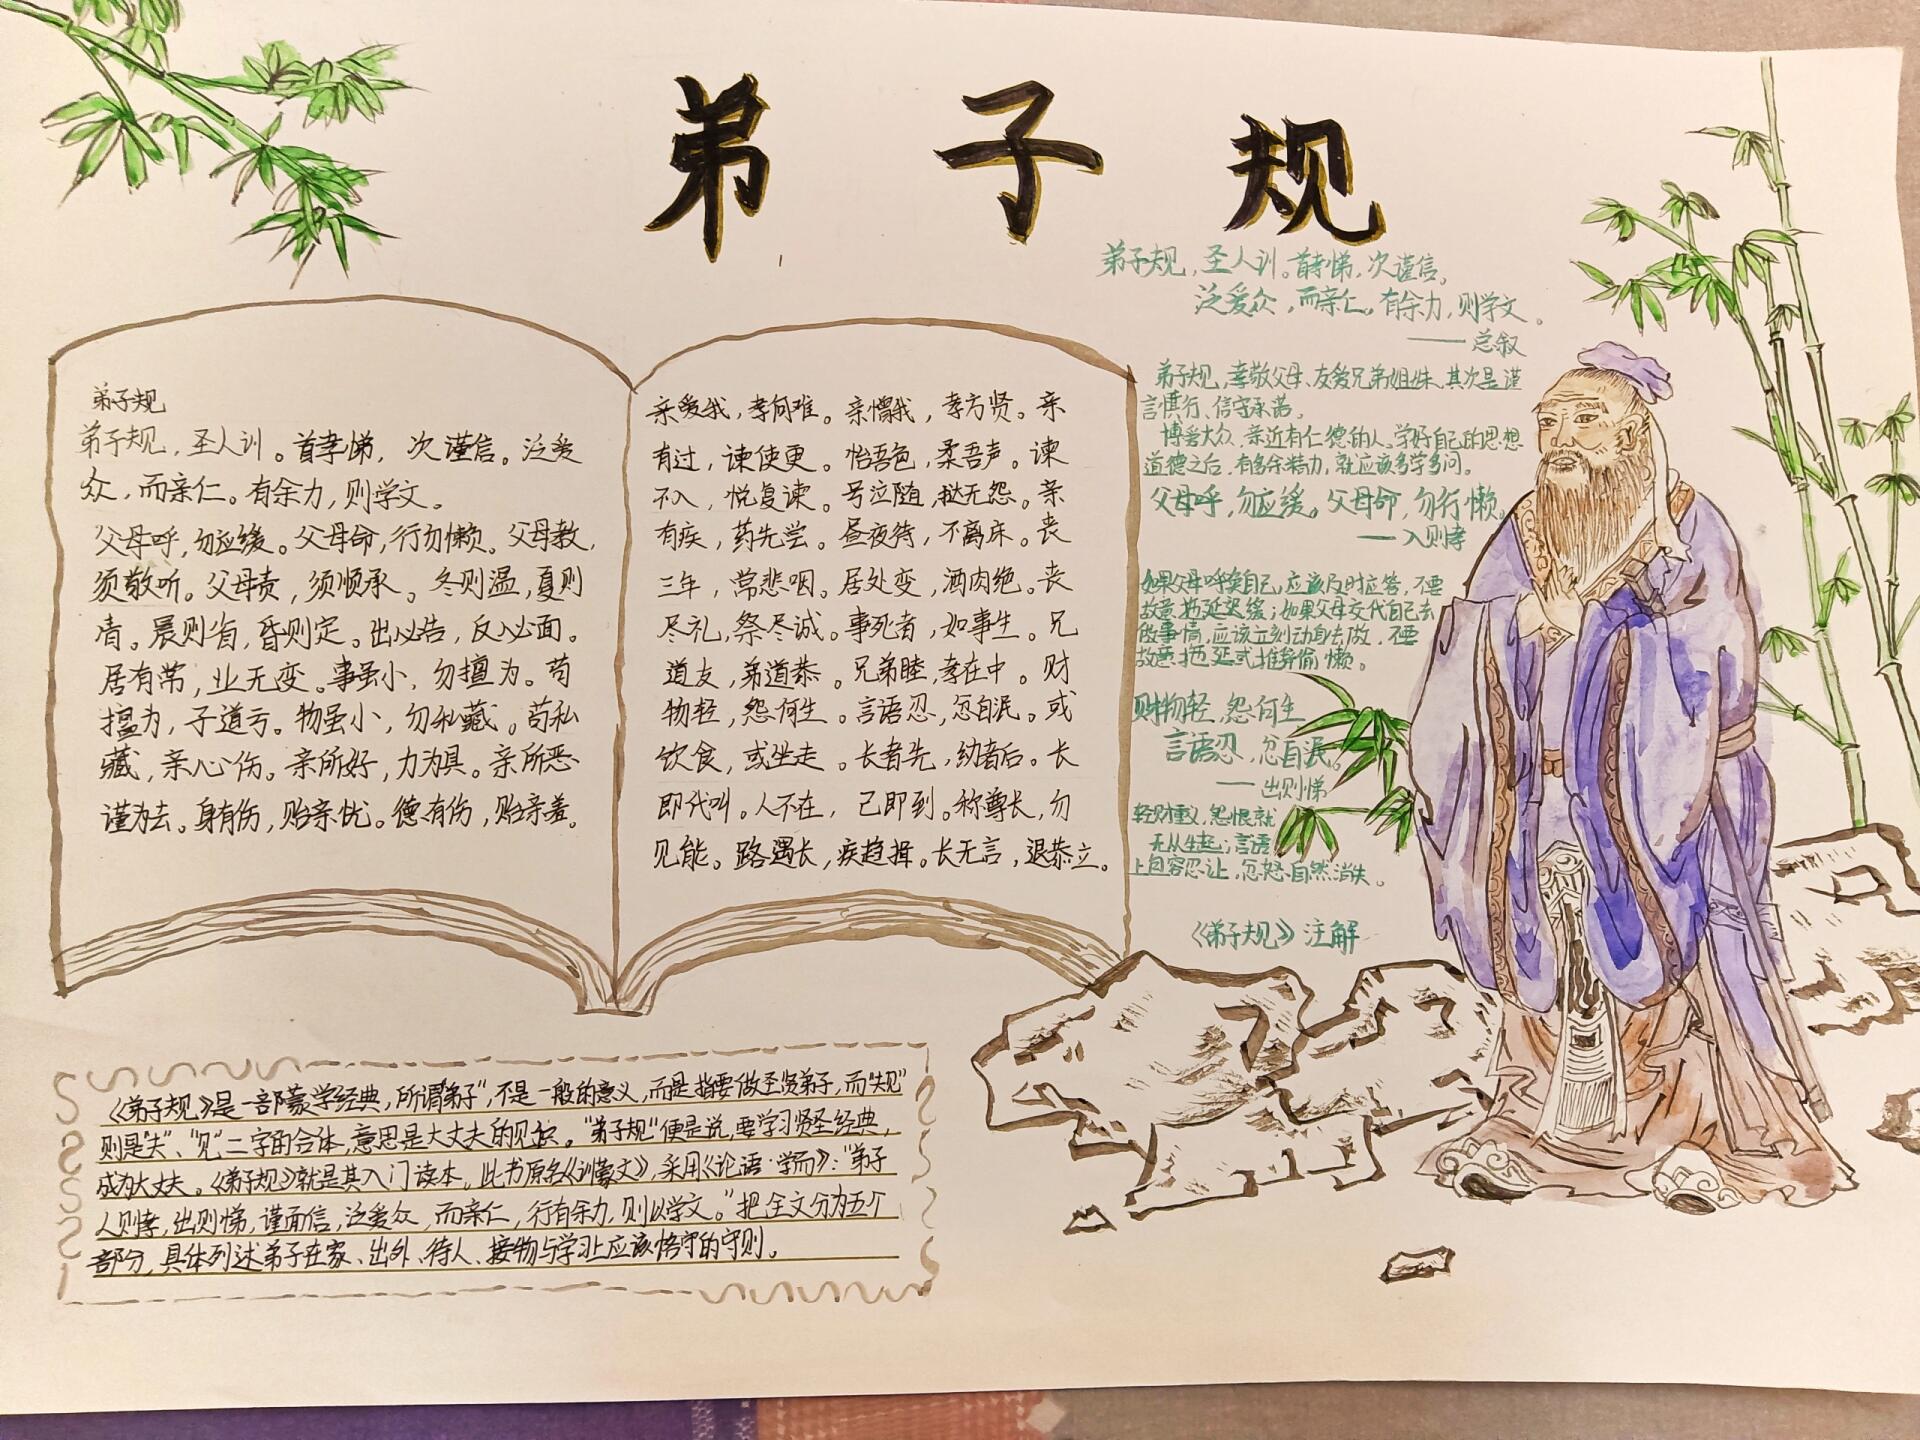 弟子规
弟子规
弟子规，圣人训。首孝悌，次谨信。泛爱
众，而亲仁。有余力，则学文。
父母呼，勿应缓。父母命，行勿懒。父母教，
须敬听。父母责，须顺承。冬则温，夏则
凊。晨则省，昏则定。出必告，反必面。
居有常，业无变。事虽小，勿擅为。苟
擅为，子道亏。物虽小，勿私藏。苟私
藏，亲心伤。亲所好，力为具。亲所恶
谨为去。身有伤，贻亲忧。德有伤，贻亲羞。
亲爱我，孝何难。亲憎我，孝方贤。亲
有过，谏使更。怡吾色，柔吾声。谏
不入，悦复谏。号泣随，挞无怨。亲
有疾，药先尝。昼夜侍，不离床。丧
三年，常悲咽。居处变，酒肉绝。丧
尽礼，祭尽诚。事死者，如事生。兄
道友，弟道恭。兄弟睦，孝在中。财
物轻，怨何生。言语忍，忿自泯。或
饮食，或坐走。长者先，幼者后。长
即代叫。人不在，己即到。称尊长，勿
见能。路遇长，疾趋揖。长无言，退恭立。
弟子规，圣人训。首孝悌，次谨信。
泛爱众，而亲仁。有余力，则学文。
——总叙
弟子规，孝敬父母、友爱兄弟姐妹、其次是谨
言慎行、信守承诺。
博爱大众、亲近有仁德的人。学好自己的思想
道德之后，有多余精力，就应该多学多问。
父母呼，勿应缓。父母命，勿行懒。
——入则孝
如果父母呼唤自己，应该及时应答，不要
故意拖延迟缓；如果父母交代自己去
做事情，应该立刻动身去做，不要
故意拖延或推辞偷懒。
财物轻，怨何生
言语忍，忿自泯。
——出则悌
轻财重义，怨恨就
无从生起；言语
上包容忍让，忿怒自然消失。
《弟子规》注解
《弟子规》是一部蒙学经典，所谓“弟子”，不是一般的意义，而是指要做圣贤弟子，而“规”
则是“夫”、“见”二字的合体，意思是大丈夫的见识。“弟子规”便是说，要学习贤圣经典，
成为大丈夫。《弟子规》就是其入门读本，此书原名《训蒙文》，采用《论语·学而》：“弟子
入则孝，出则悌，谨而信，泛爱众，而亲仁，行有余力，则以学文。”把全文分为五个
部分，具体列述弟子在家、出外、待人、接物与学习上应该恪守的守则。